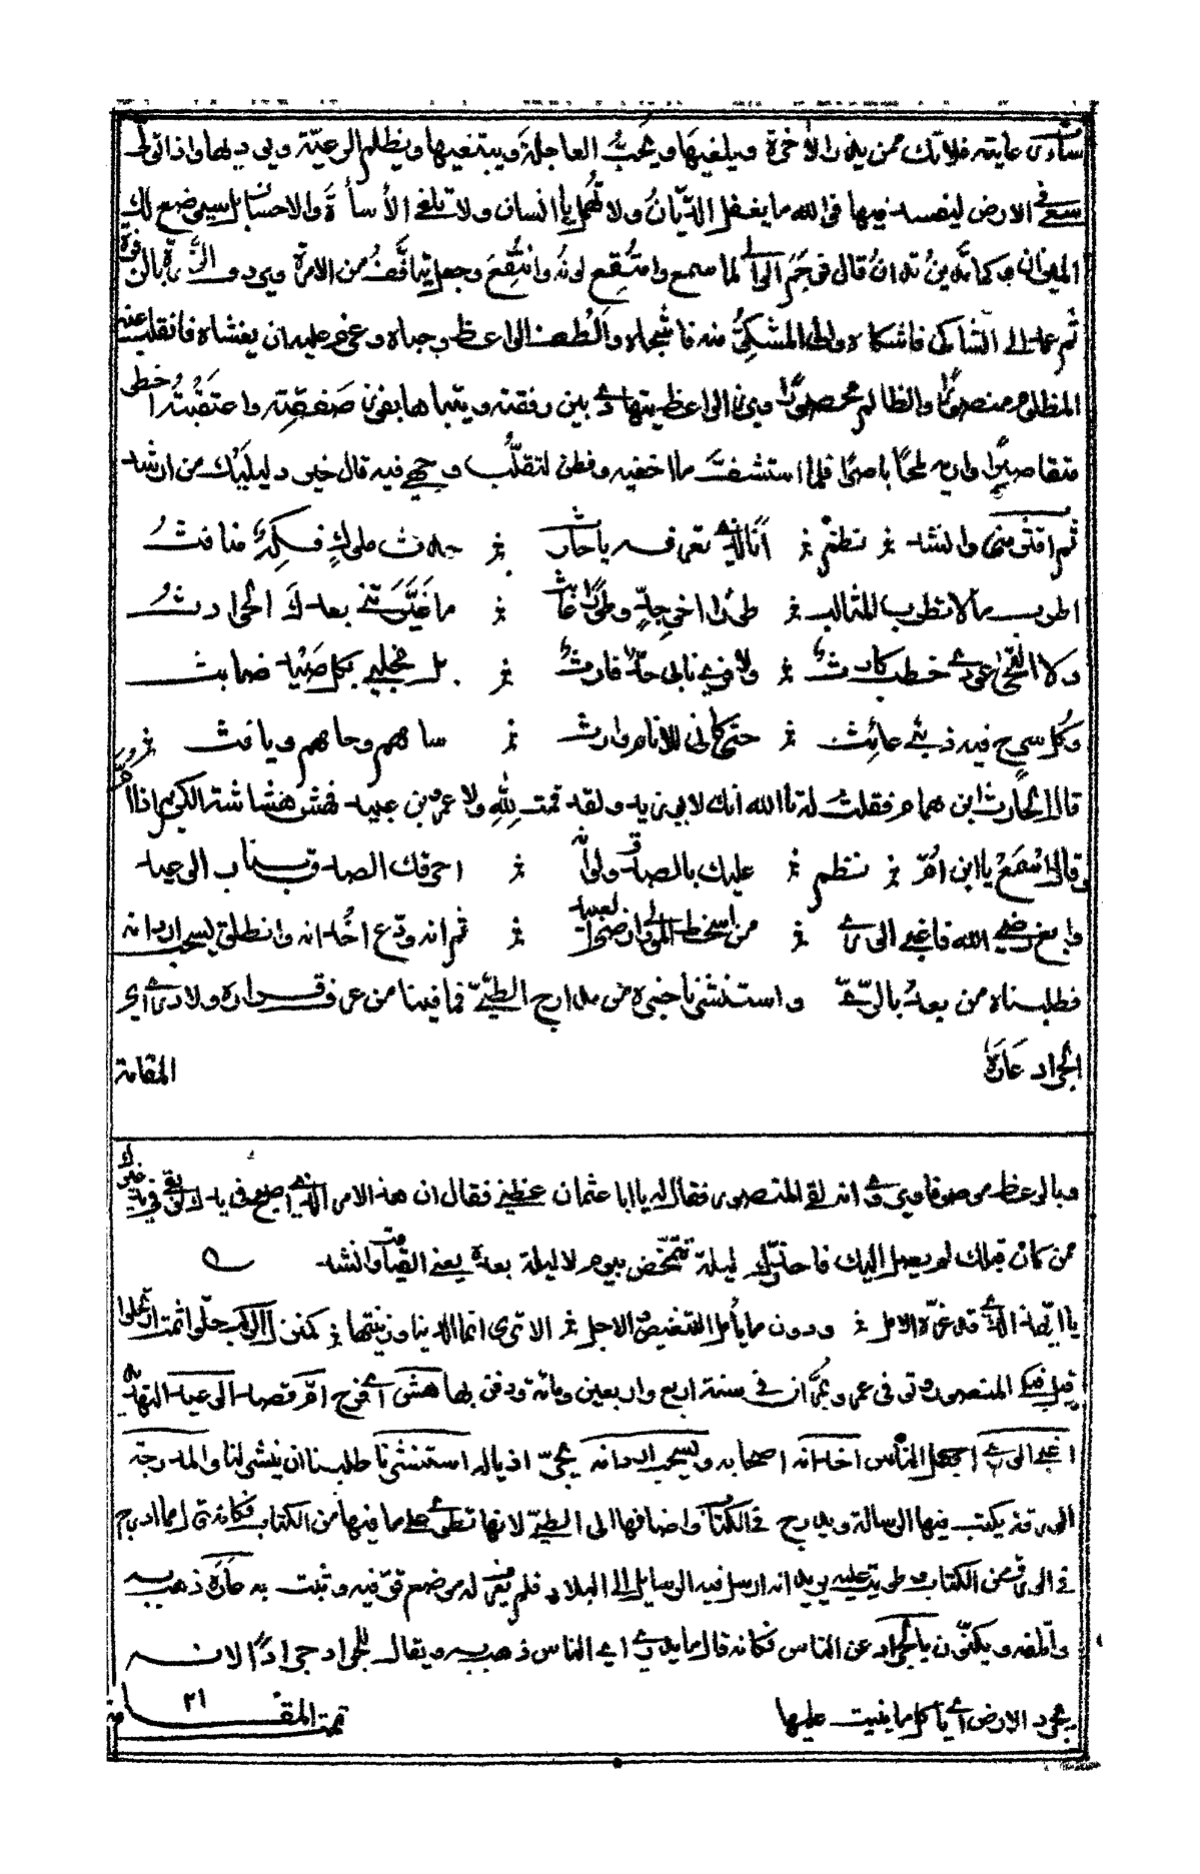 سأوى عايته فلا تك ممن يذر الآخرة ويلغيها ويحبّ العاجلة ويبتغيها ويظلم الرعيّة ويؤذيها واذا تولّى
سعى في الارض ليفسد فيها فوالله ما يغفل الديّانُ ولا تُهمل يا انسان ولا تلغى الأسأة والاحسان بل سيوضع لك
الميزان وكما تدينُ تدانُ قال فوجم الوالى لما سمع وامتُقِع لونُه وانتُقِعَ وجعل يتأفّفُ من الامرة ويردف الزّفرة بالزفرة
ثم عمد الى الشاكى فاشكاه والى المشكوّ منه فاشجاه والطف الواعظ وحباه وعزم عليه ان يغشاه فانقلب عنه
المظلوم منصورًا والظالم محصورًا وبرز الواعظ يتهادى بين رفقته ويتباها بفوز صَفقتِه واعتقبتُه اخطو
متقاصرًا واريه لمحًا باصرًا فلما استشفّ ما اخفيه وفطن لتقلّب وجهى فيه قال خير دليلَيك من ارشد
ثم اقترب منى وانشد نظم أنا الذى تعرفه يا حارث حدث ملوكٍ فكِهٌ منافثُ
اطرب ما لا تطرب المثالث طورًا اخو جدٍّ وطورًا عابث ما غيّرَتنى بعدك الحوادثُ
ولا التحى عودى خطب كارثٌ ولا فرى نابى حدٌّ فارثٌ بل مخلبى بكل صَيد ضابث
وكلُّ سرح فيه ذئبى عائث حتى كأنى للانام وارث سامهم وحامهم ويافث
قال الحارث ابن همام فقلت له تالله انك لابو زيد ولقد قمت لِلّهِ ولا عمرو بن عبيد فهشّ هشاشة الكريم اذا اُمّ
وقال اسْمَعْ يا ابن اُمّ نظم عليك بالصدق ولو أنه احرقك الصدق بنار الوعيد
وابغ رضى الله فاغبى الورى من اسخط المولى وارضى العبيد ثم انه ودّع اخدانه وانطلق يسحب اردانه
فطلبناه من بعدُ بالرّىّ واستنشرنا خبره من مدارج الطيّ فما فينا من عرف قراره ولا درى اىّ
الجراد عَارَهُ المقامة
وبالوعظ موصوفا وروى انه لقى المنصور فقال له يا ابا عثمان عظنى فقال ان هذا الامر الذى اصبح فى يدك لو بقى فى يد غيرك
ممن كان قبلك لم يصل اليك فاحذر ليلة تمخّض بيوم لا ليلة بعده يعنى القيامة وانشد
يا ايّهذا الذى قد غرّه الامل ودون ما يأمل التنغيص والاجل الا ترى انما الدنيا وزينتها كمنزل الركب حلّوا ثمت ارتحلوا
المنصور توفى فى سنة اربع واربعين ومائة ودفن بها هشّ اى فرح اَمّ قصد الوعيد التهديد
اغبى الورى اجهل الناس اخدانه اصحابه ويسحب اردانه يجرّ اذياله استنشرنا طلبنا ان ينشر لنا والمدرجة
الورقة يكتب فيها الرسالة ويدرج فى الكتاب واضافها الى الطيّ لانها تطوى على ما فيها من الكتاب فكانه لما ادرج
فى الورق من الكتاب وطويت عليه يريد انه ارسل فيه الرسايل الى البلاد فلم يعرف له موضع قرّ فيه وثبت به عَارَهُ ذهب به
واتلفه ويكنّون بالجراد عن الناس فكانه قال ما يدرى اى الناس ذهب به ويقال للجراد جرادًا لانه
يجرد الارض اى يأكل ما ينبت عليها تمت المقامة ٢١